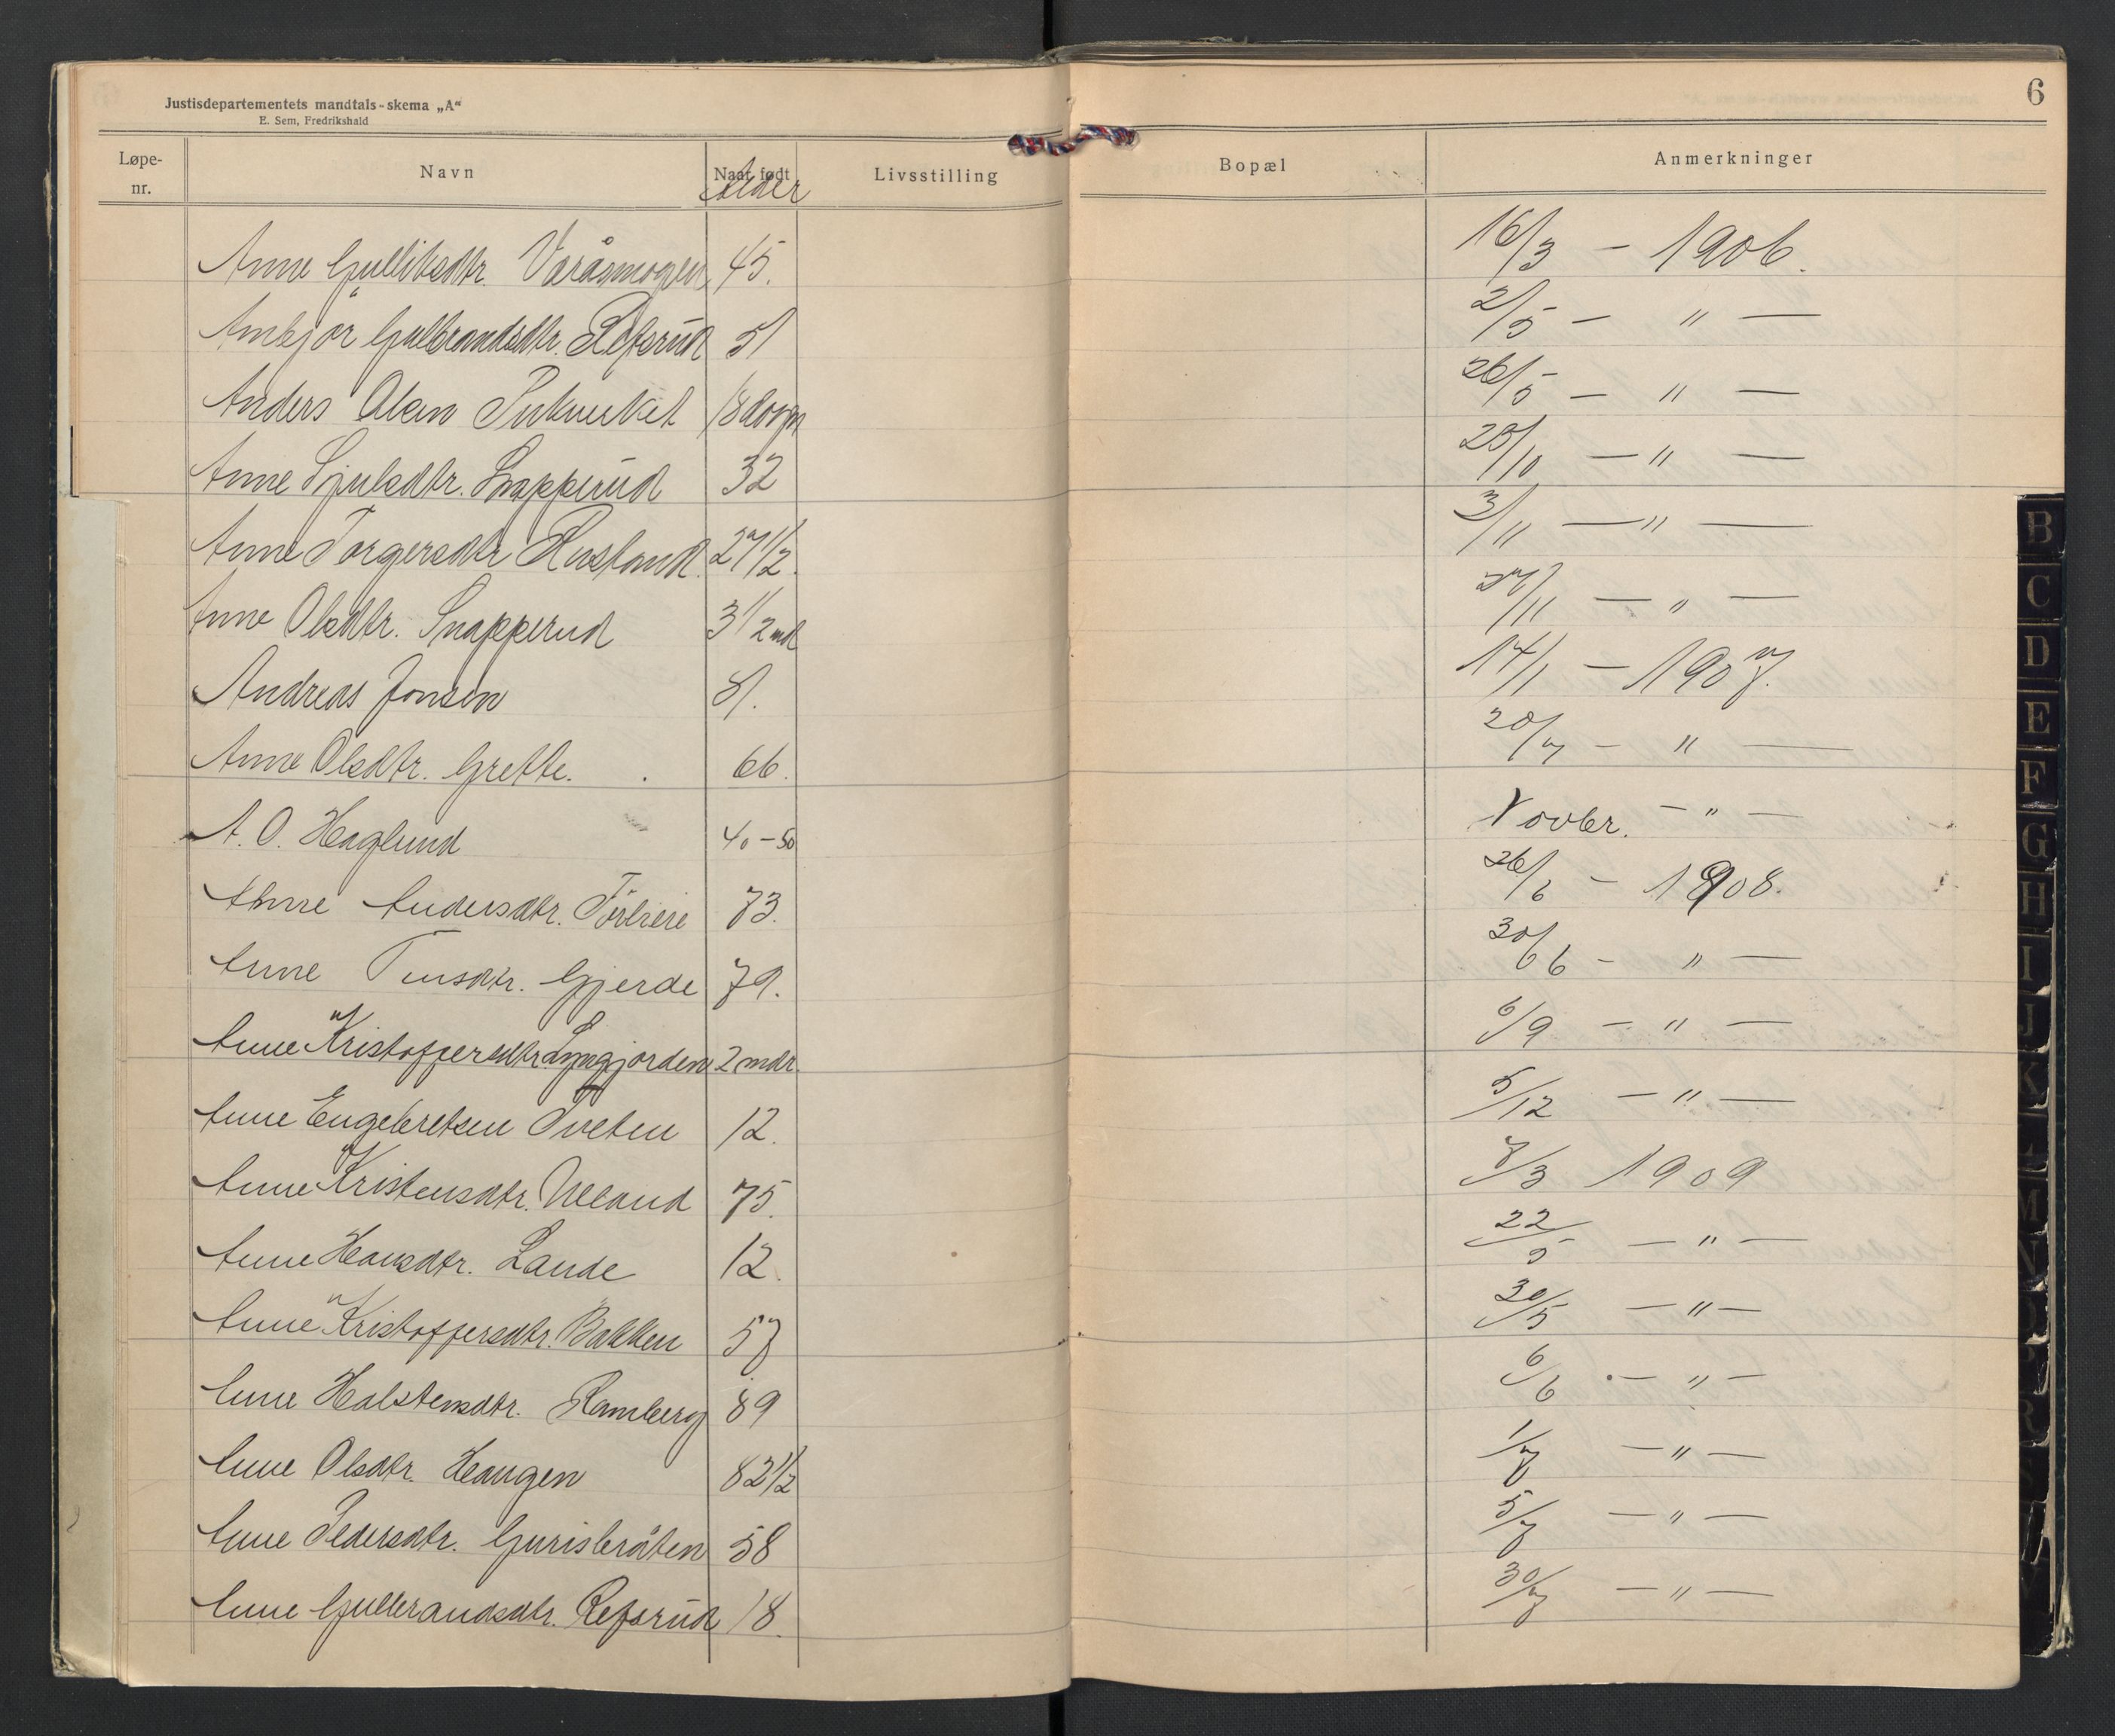 Justisdepartementets mandtals-skema „A“
E. Sem, Fredrikshald
6
Løpe-nr. Navn Naar født Alder Livsstilling Bopæl Anmerkninger
Anne Gulliksdtr. Varåsmogen 45. 16/3 - 1906.
Ambjør Gulbrandsdtr. Refsrud 51 2/5 - " -
Anders Olsen 18 døgn 26/5 - " -
Anne Sjulsdtr. Snapperud 32 25/10 - " -
Anne Torgersdtr Rustand 27 1/2. 3/11 - " -
Anne Olsdtr. Snapperud 3 1/2 md 27/11 - " -
Andreas Jonsen 81. 14/1 - 1907.
Anne Olsdtr. Grette. 66. 20/7 - " -
A. O. Haglund 40-50 Novbr. - " -
Anne Andersdtr. 73. 26/6 - 1908.
Anne Gjerde 79. 30/6 - " -
Anne Kristoffersdtr. 2 mdr. 6/9 - " -
Anne Engebretsen Tveten 12. 5/12 - " -
Anne Kristensdtr. Ulland 75. 7/3 1909
Anne Hansdtr. Lande 12. 22/5 - " -
Anne Kristoffersdtr. Bakken 57 30/5 - " -
Anne Halstensdtr. Ramberg 89 6/6 - " -
Anne Olsdtr. Haugen 82 1/2 1/7 - " -
Anne Pedersdtr. Gurisbråten 58 5/7 - " -
Anne Gulbrandsdtr. Refsrud 18. 30/7 - " -
B
C
D
E
F
G
H
I
J
K
L
M
N
O
P
R
S